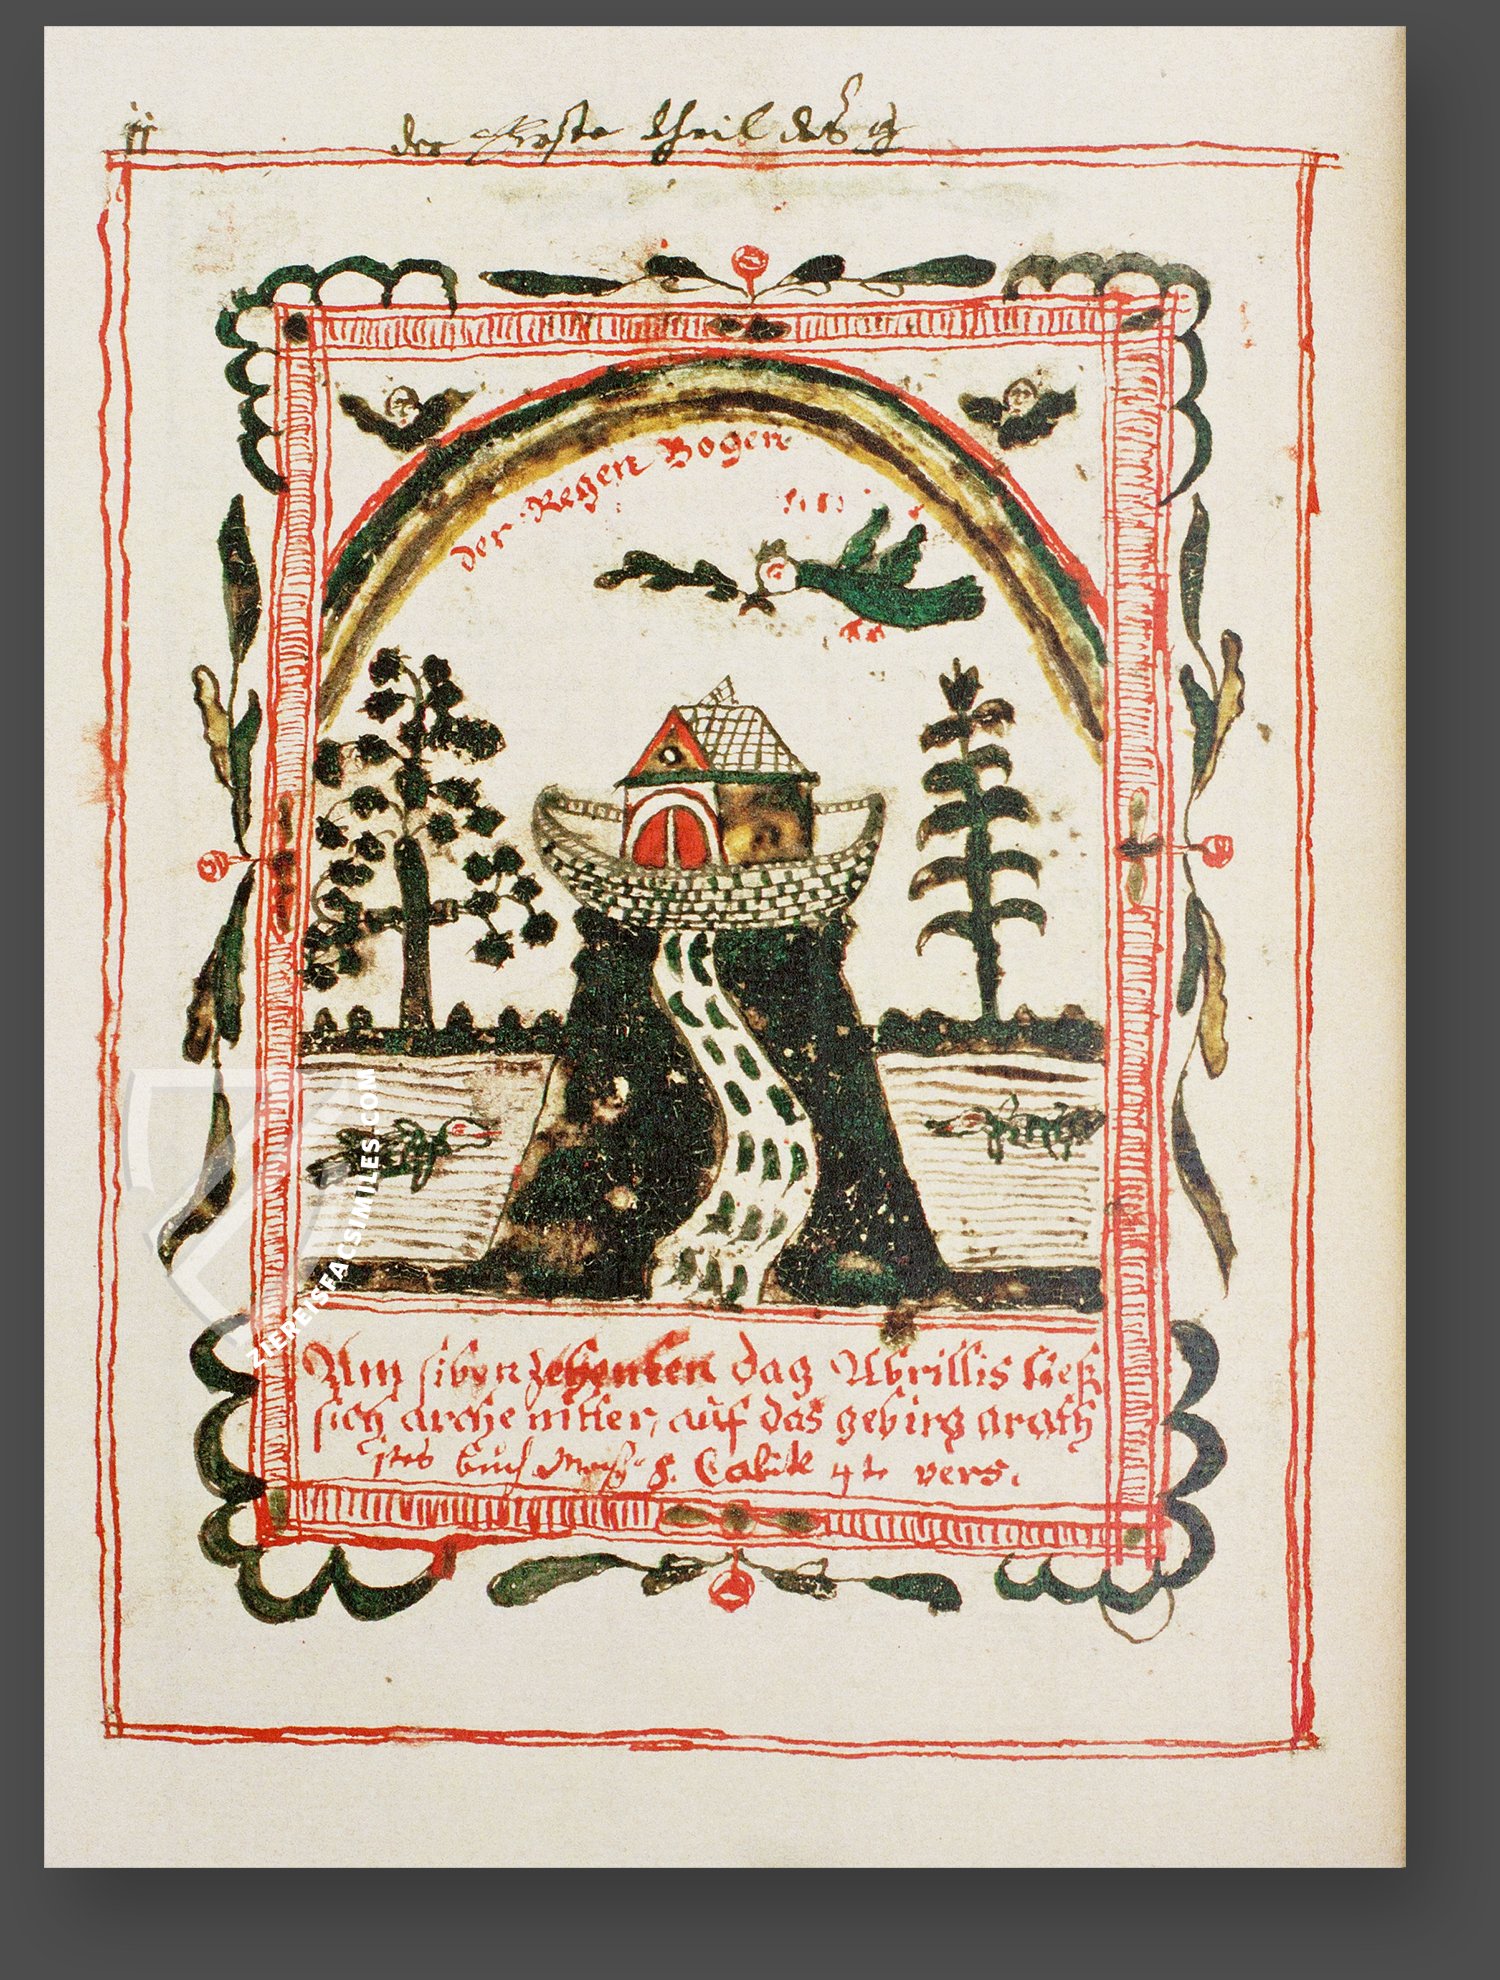 der Erste theil des
der Regen Bogen
Am sibenzehenten dag Abrillis ließ
sich arche nitter, auf das gebirg arath
istes buch 8. Cabitl 4te vers.
ZIEREISFACSIMILES.COM